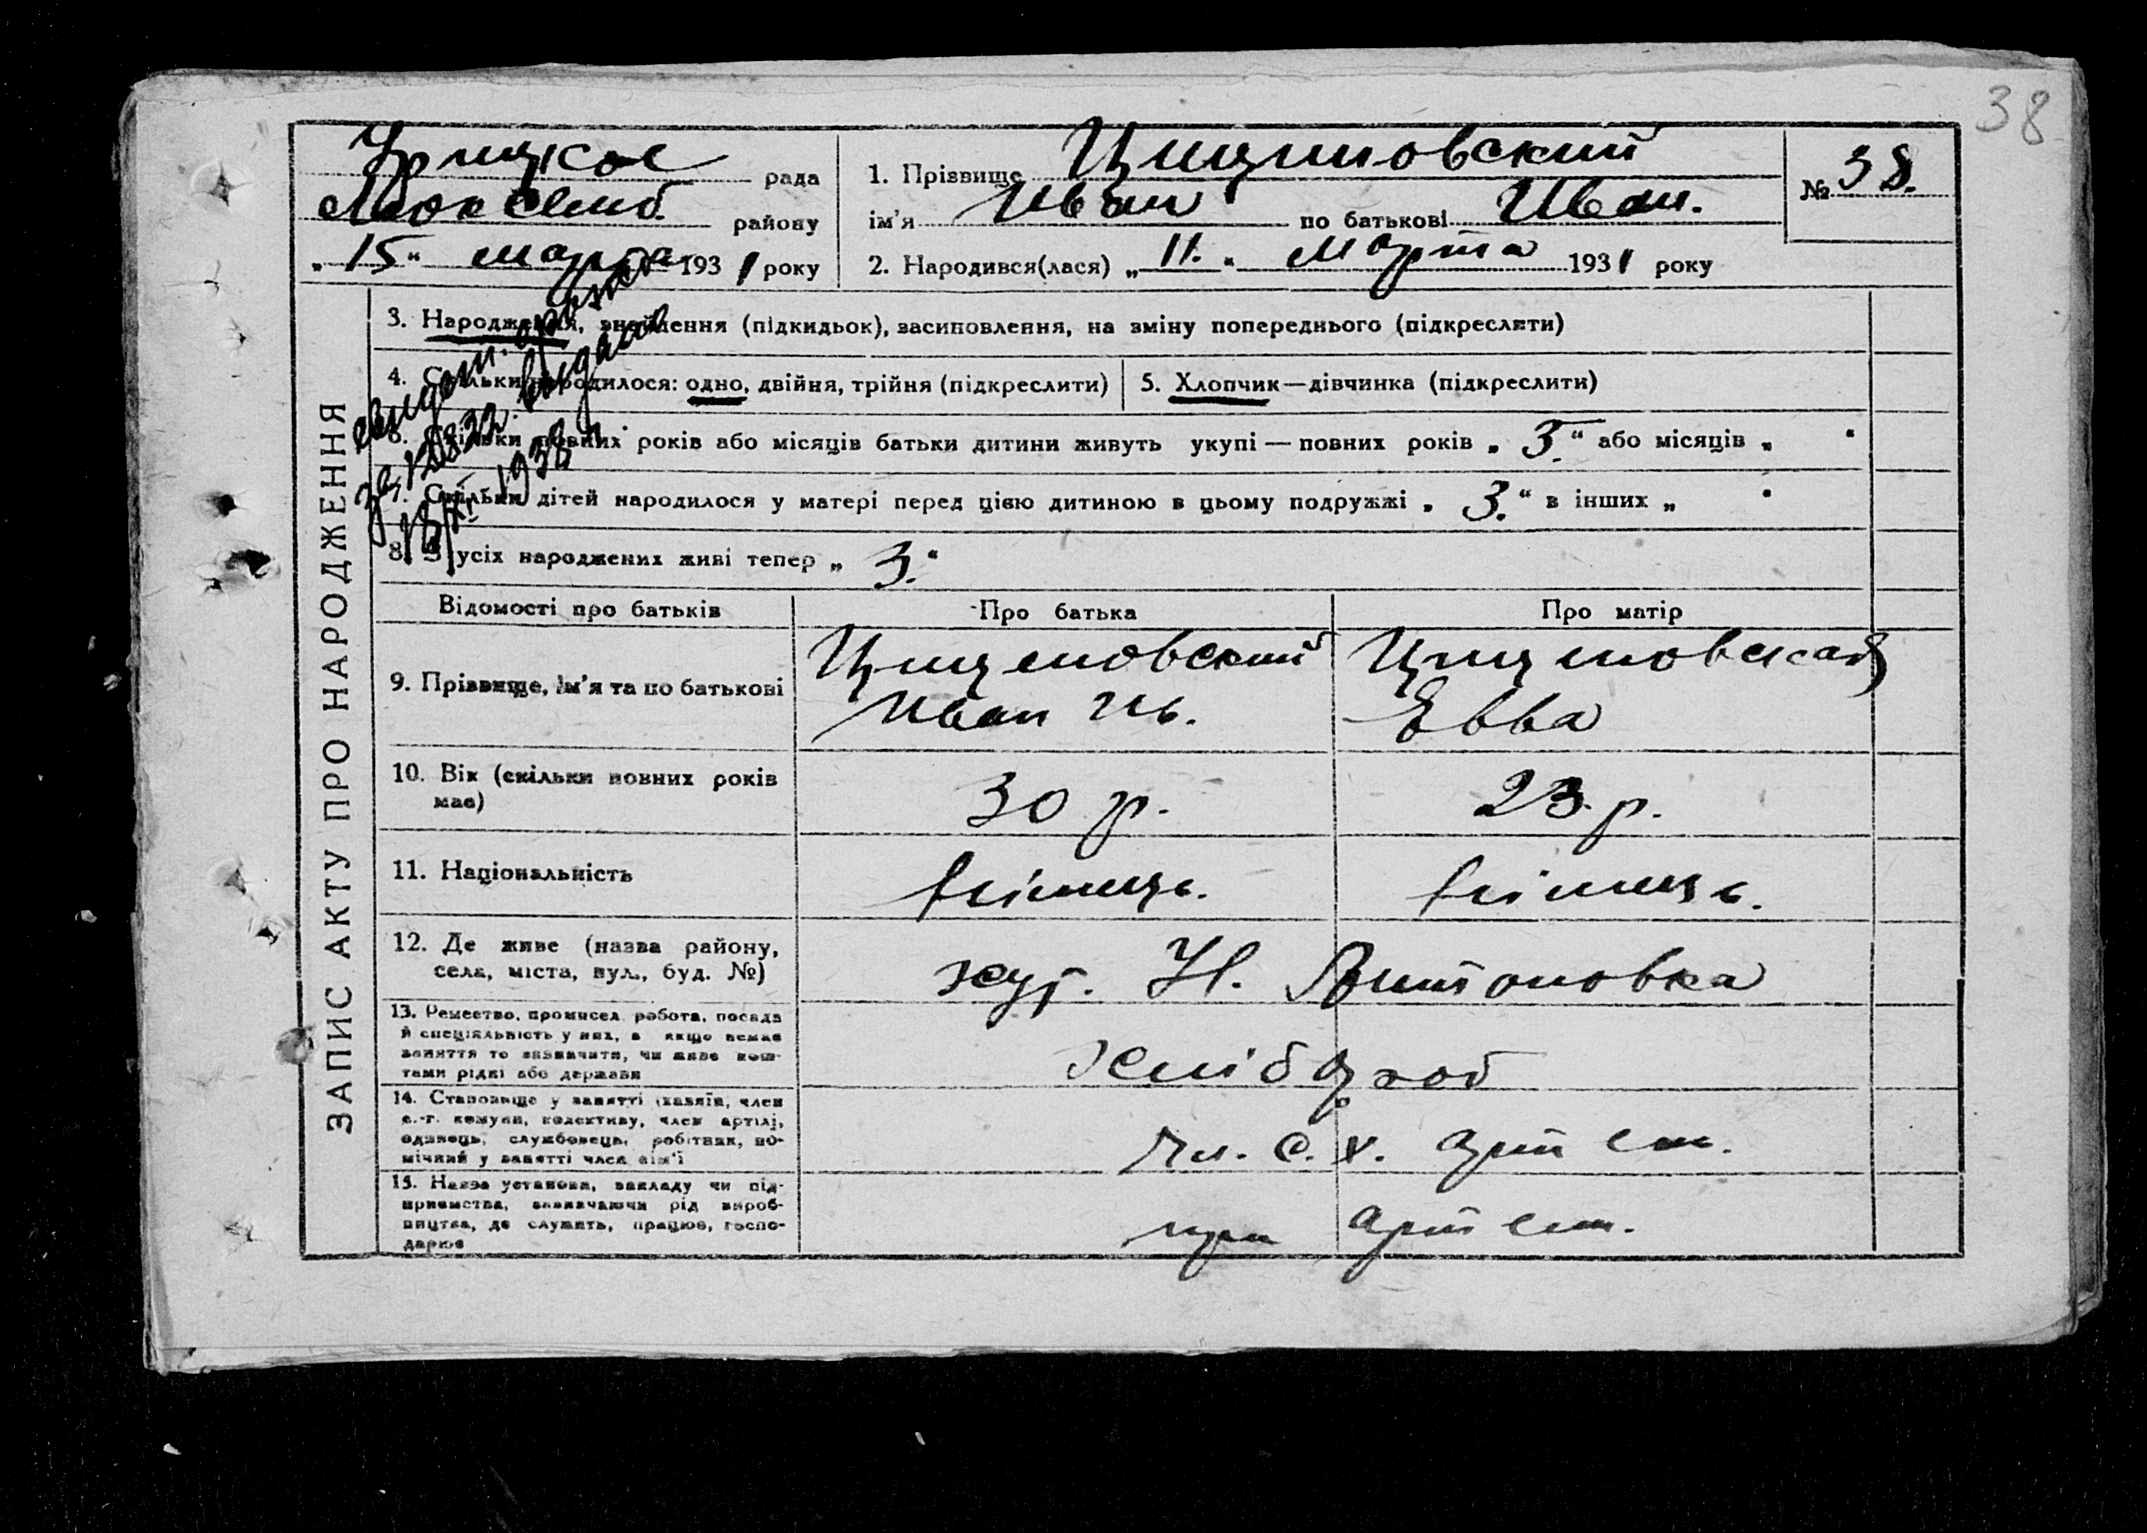 38
Урицкое рада
Люксемб. району
„ 15 “ марта 1931 року
1. Прізвище Цициновский
ім'я Иван по батькові Иван.
2. Народився(лася) „ 11. “ Марта 1931 року
№ 38.
ЗАПИС АКТУ ПРО НАРОДЖЕННЯ
3. Народження, знайдення (підкидьок), засиновлення, на зміну попереднього (підкреслити)
4. Скільки народилося: одно, двійня, трійня (підкреслити)
5. Хлопчик—дівчинка (підкреслити)
6. Скільки повних років або місяців батьки дитини живуть укупі — повних років „ 5. “ або місяців „ “
7. Скільки дітей народилося у матері перед цією дитиною в цьому подружжі „ 3. “ в інших „ “
8. З усіх народжених живі тепер „ 3. “
выдано
1938 г.
Відомості про батьків
Про батька
Про матір
9. Прізвище, ім'я та по батькові
Цициновский
Иван Ив.
Цициновская
Евва
10. Вік (скільки повних років
має)
30 р.
23 р.
11. Національність
німець.
німець.
12. Де живе (назва району,
села, міста, вул., буд. №)
хут. Н. Антоновка
13. Ремество, промисел, робота, посада
й спеціяльність у них, а якщо немає
заняття то зазначити, чи живе кош-
тами рідні або держави
хлібороб
14. Становище у занятті (хазяїн, член
с.-г. комуни, колективу, член артілі,
одинець, службовець, робітник, по-
мічний у занятті член сім'ї
Чл. с. х. артели.
15. Назва установи, закладу чи під-
приємства, зазначаючи рід вироб-
ництва, де служить, працює, госпо-
дарює
при артели.